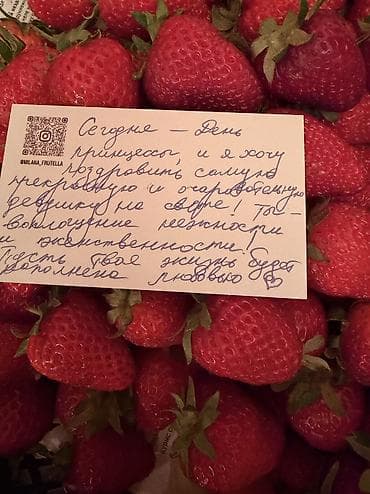 @MILANA_FRUTELLA
Сегодня – День
принцессы, и я хочу
поздравить самую
прекрасную и очаровательную
девушку на свете! Ты –
воплощение нежности
и женственности!
Пусть твоя жизнь будет
наполнена любовью